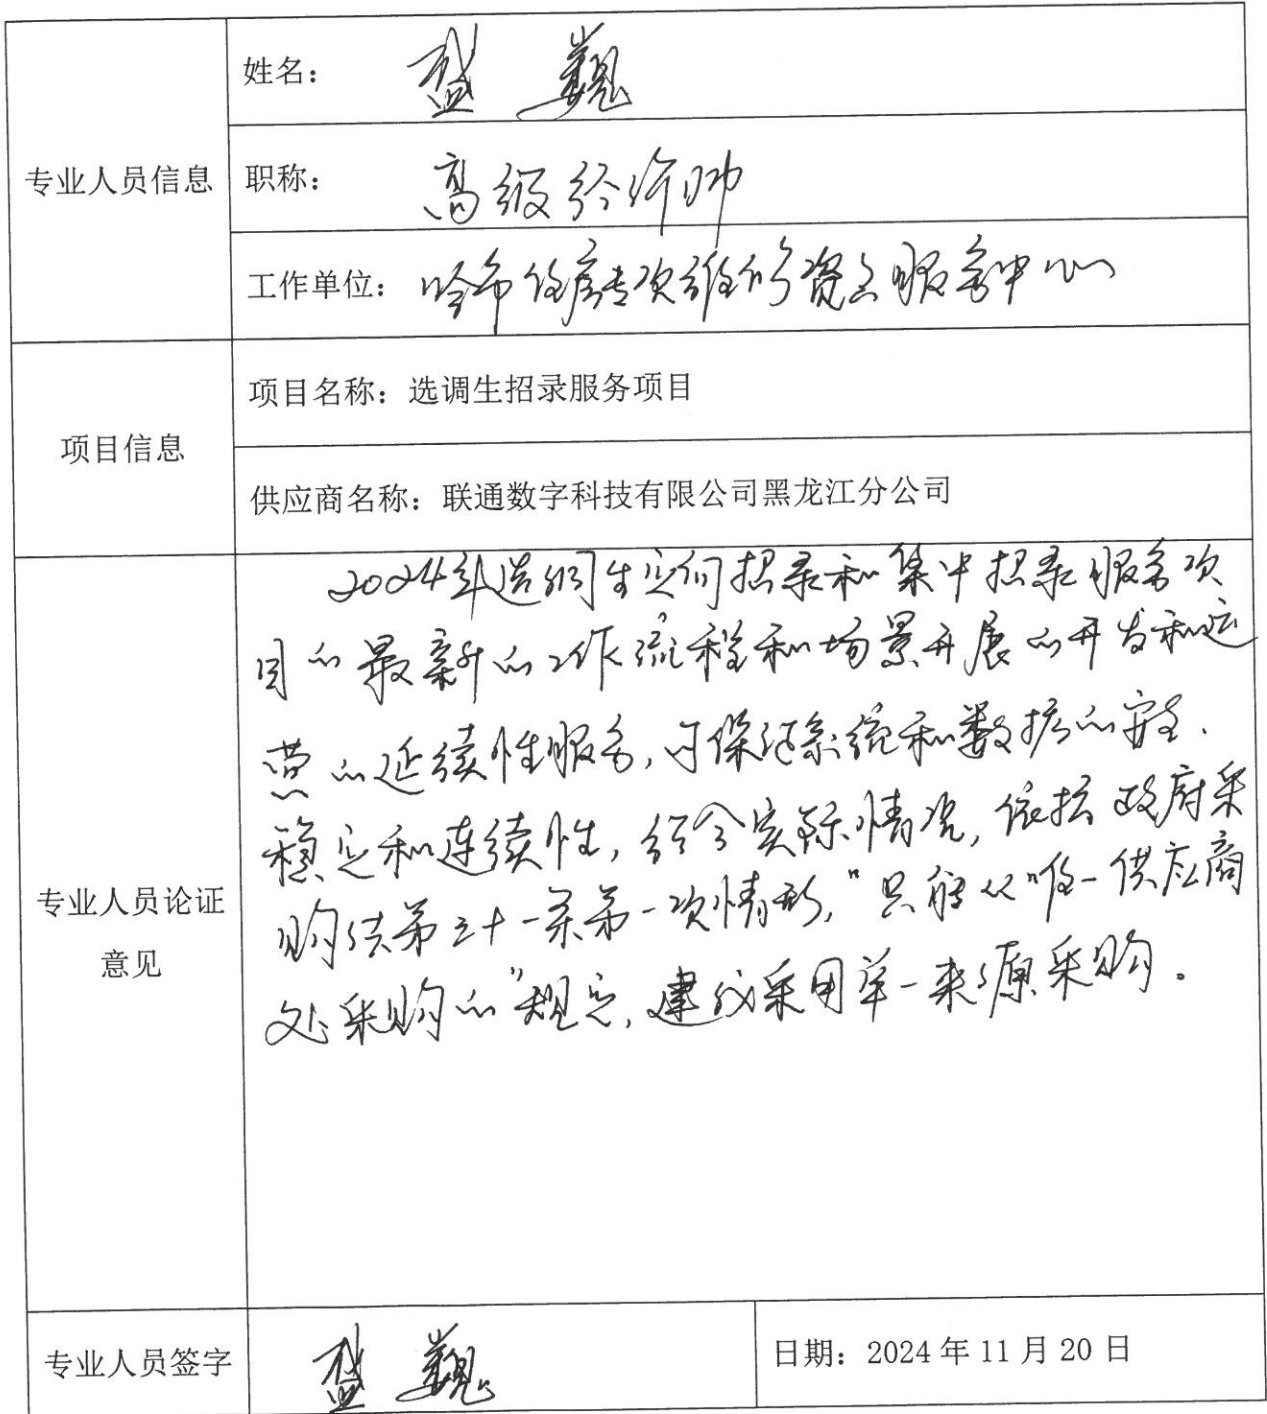 专业人员信息
姓名：盛巍
职称：高级经济师
工作单位：哈市住房专项维修资金服务中心
项目信息
项目名称：选调生招录服务项目
供应商名称：联通数字科技有限公司黑龙江分公司
专业人员论证
意见
2024年选调生定向招录和集中招录服务项
目的最新的工作流程和场景开展的开发和运
营的延续性服务，可保证系统和数据的安全、
稳定和连续性，结合实际情况，依据政府采
购法第三十一条第一次情形，“只能从唯一供应商
处采购的”规定，建议采用单一来源采购。
专业人员签字
盛巍
日期：2024年11月20日